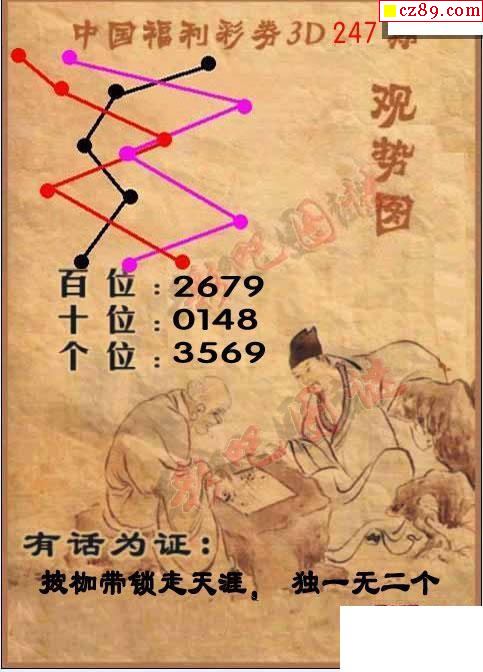 cz89.com
中国福利彩券3D 247
观势图
百位:2679
十位:0148
个位:3569
有话为证:
披枷带锁走天涯。 独一无二个